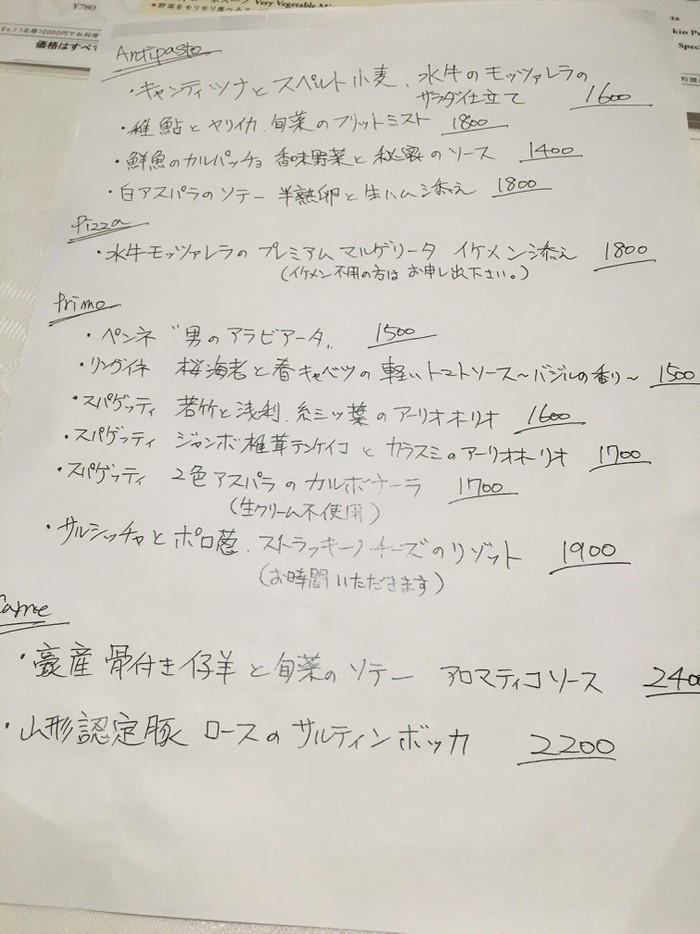 ¥780
*野菜をモリモリ食べる
Very Vegetable Mi
Ex.) 1名様10000円でお料理
価格はすべて
kin P
Spec
Antipasto
・キャンティツナとスペルト小麦、水牛のモッツァレラの
サラダ仕立て 1600
・稚鮎とヤリイカ、旬菜のフリットミスト 1800
・鮮魚のカルパッチョ 香味野菜と秘密のソース 1400
・白アスパラのソテー 半熟卵と生ハム添え 1800
Pizza
・水牛モッツァレラのプレミアムマルゲリータ イケメン添え 1800
(イケメン不用の方はお申し出下さい。)
Primo
・ペンネ “男のアラビアータ„ 1500
・リングイネ 桜海老と春キャベツの軽いトマトソース～バジルの香り～ 1500
・スパゲッティ 若竹と浅利、糸三ッ葉のアーリオオーリオ 1600
・スパゲッティ ジャンボ椎茸テンケイコとカラスミのアーリオオーリオ 1700
・スパゲッティ 2色アスパラのカルボナーラ 1700
(生クリーム不使用)
・サルシッチャとポロ葱、ストラッキーノチーズのリゾット 1900
(お時間いただきます)
Carne
・豪産骨付き仔羊と旬菜のソテー アロマティコソース 2400
・山形認定豚 ロースのサルティンボッカ 2200